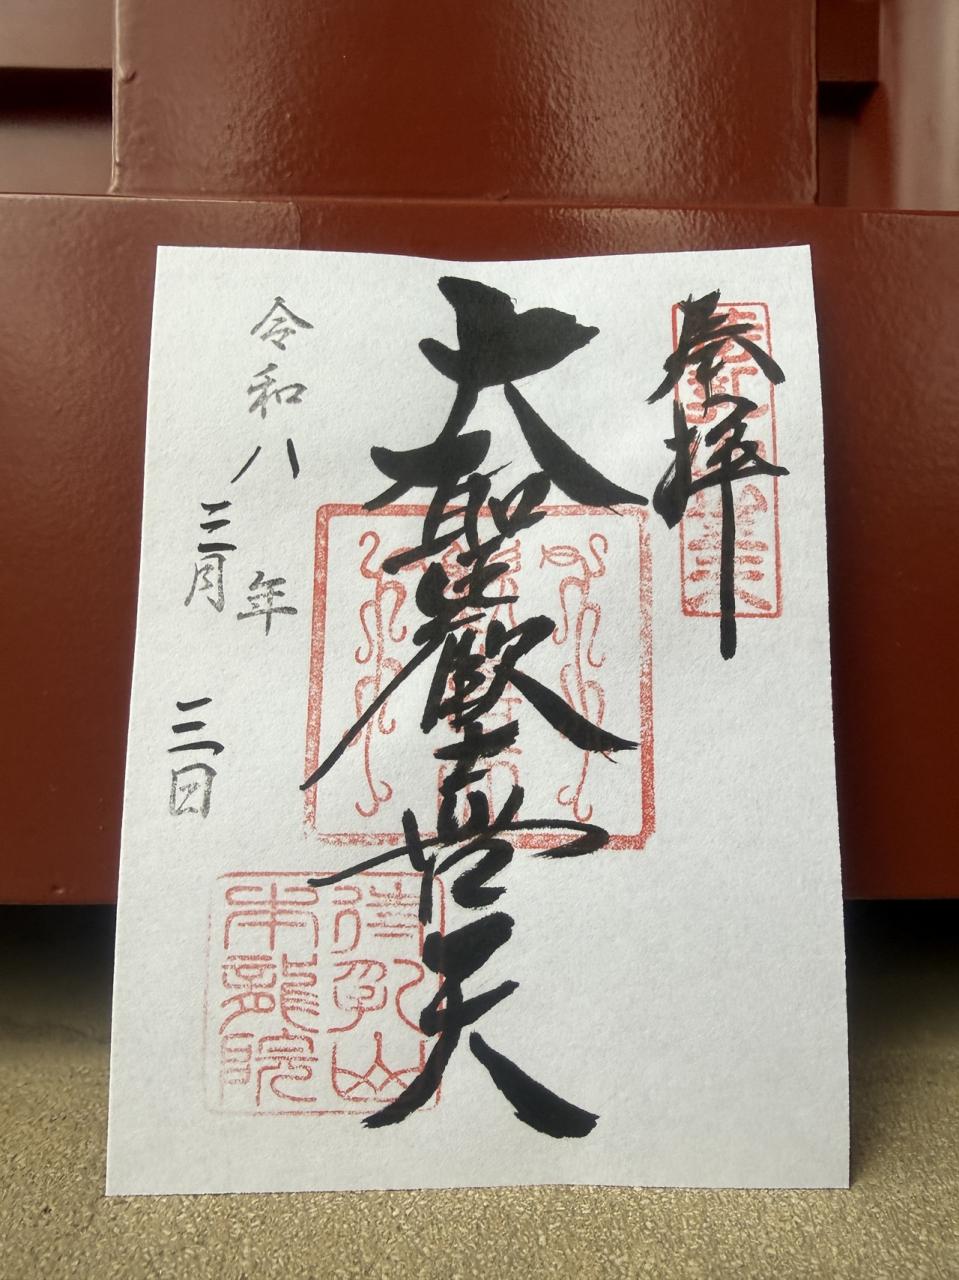 奉拝
大聖歓喜天
令和八年
三月三日
待乳山
本龍院